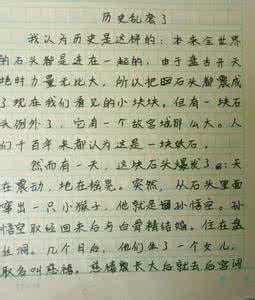 历史乱套了
我认为历史是这样的：本来全世界
的石头都是连在一起的，由于盘古开天
地时力量无比大，所以把石头都震成
了现在我们看见的小块块。但有一块石
头例外了，它有一个故宫城那么大。人
们千百年长都认为这是一块纸石。
然而有一天，这块石头爆发了：天
在震动，地在摇晃。突然，从石头里面
窜出一只小猴子，他就是孙悟空。孙
悟空取经回来后与白骨精结婚。住在盘
丝洞。几个月后，他们生了一个女儿，
取名叫慈禧。慈禧长大后就去后宫闹